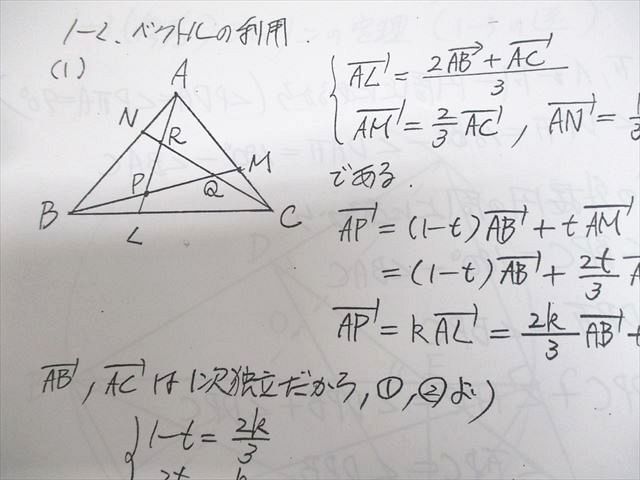 1-2. ベクトルの利用.
(1)
A
N
R
M
P
Q
B
C
L
AL→ = (2AB→ + AC→)/3
AM→ = 2/3 AC→, AN→ = 1/3
である.
AP→ = (1-t)AB→ + tAM→
= (1-t)AB→ + 2t/3 A
AP→ = kAL→ = 2k/3 AB→ +
AB→, AC→ は1次独立だから, ①, ②より
1-t = 2k/3